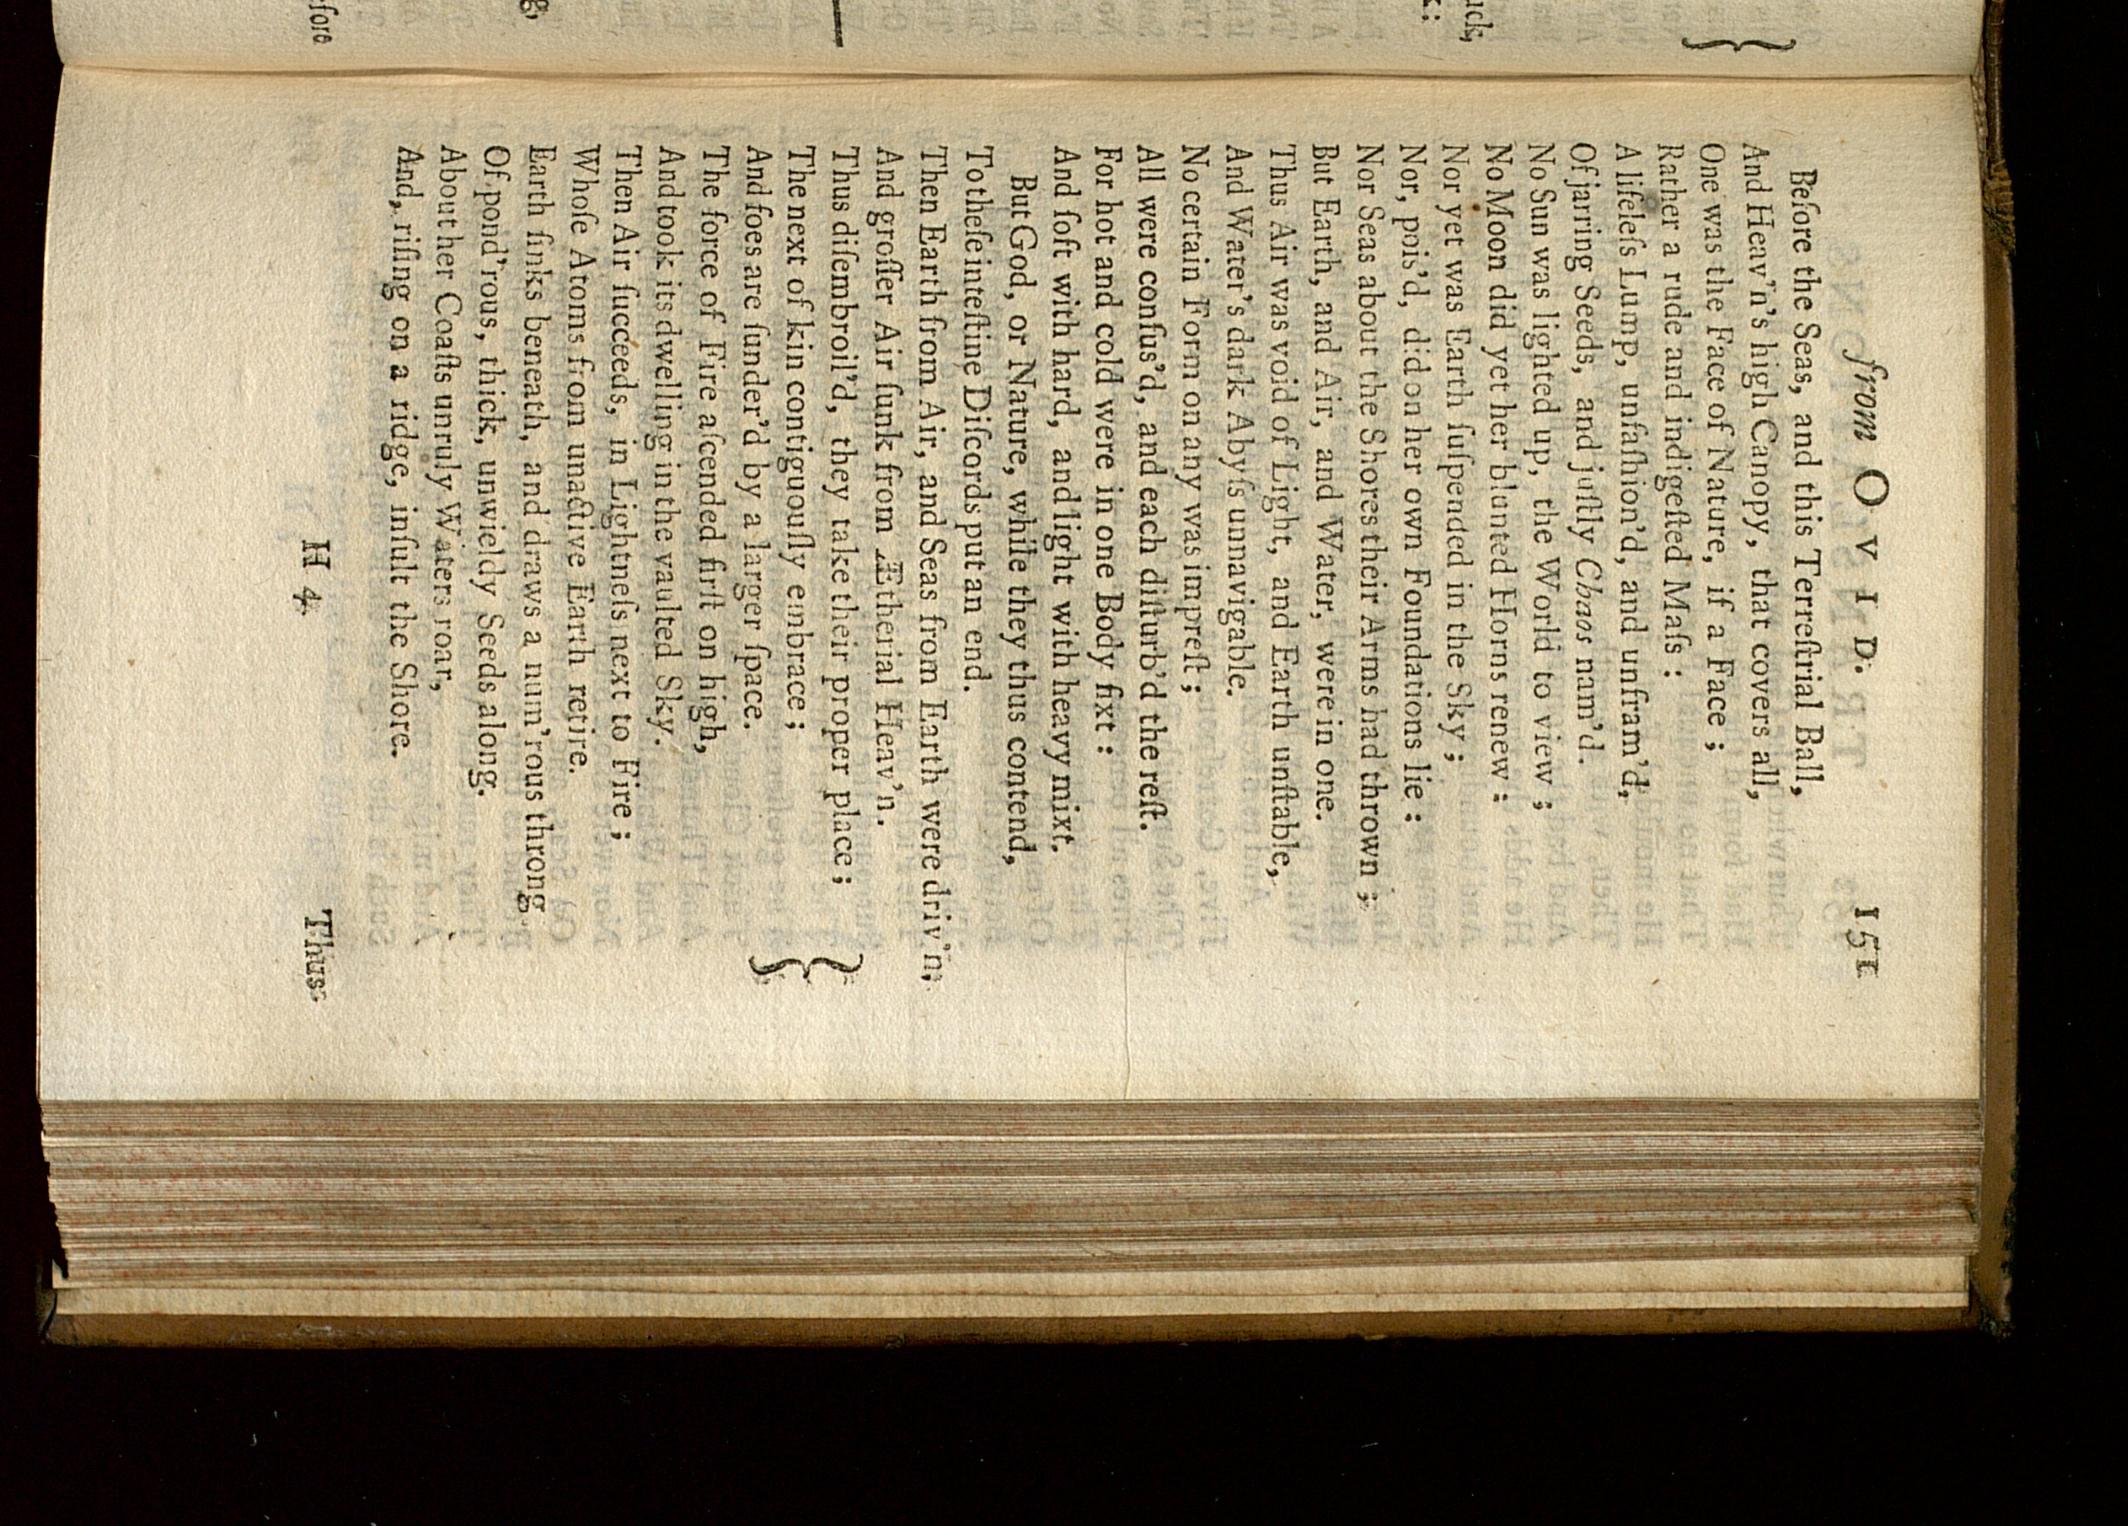 ſore
g,
uck,
:
from OVID. 151
Before the Seas, and this Terreſtrial Ball,
And Heav'n's high Canopy, that covers all,
One was the Face of Nature, if a Face;
Rather a rude and indigeſted Maſs:
A lifeleſs Lump, unfaſhion'd, and unfram'd,
Of jarring Seeds, and juſtly Chaos nam'd.
No Sun was lighted up, the World to view;
No Moon did yet her blunted Horns renew:
Nor yet was Earth ſuſpended in the Sky;
Nor, pois'd, did on her own Foundations lie:
Nor Seas about the Shores their Arms had thrown;
But Earth, and Air, and Water, were in one.
Thus Air was void of Light, and Earth unſtable,
And Water's dark Abyſs unnavigable.
No certain Form on any was impreſt;
All were confus'd, and each diſturb'd the reſt.
For hot and cold were in one Body fixt:
And ſoft with hard, and light with heavy mixt.
But God, or Nature, while they thus contend,
To theſe inteſtine Diſcords put an end.
Then Earth from Air, and Seas from Earth were driv'n,
And groſſer Air ſunk from Ætherial Heav'n.
Thus diſembroil'd, they take their proper place;
The next of kin contiguouſly embrace;
And foes are ſunder'd by a larger ſpace.
The force of Fire aſcended firſt on high,
And took its dwelling in the vaulted Sky.
Then Air ſucceeds, in Lightneſs next to Fire;
Whoſe Atoms from unactive Earth retire.
Earth ſinks beneath, and draws a num'rous throng
Of pond'rous, thick, unwieldy Seeds along.
About her Coaſts unruly Waters roar,
And, riſing on a ridge, inſult the Shore.
H 4 Thus